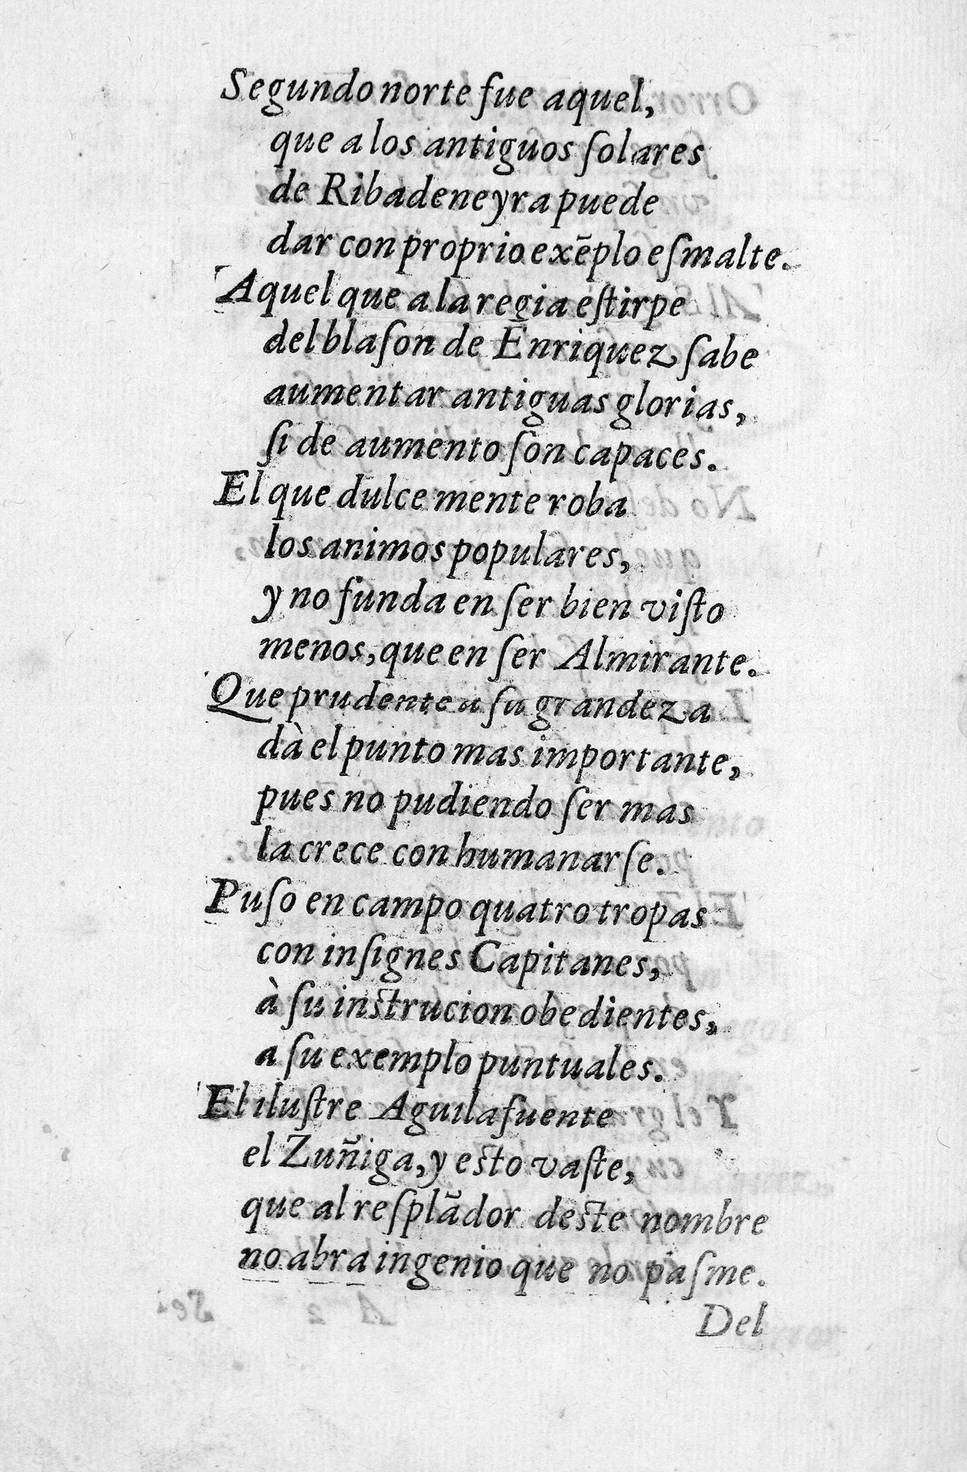 Segundo norte fue aquel,
que a los antiguos ſolares
de Ribadeneyra puede
dar con proprio exẽplo eſmalte.
Aquel que a la regia eſtirpe
del blaſon de Enriquez ſabe
aumentar antiguas glorias,
ſi de aumento ſon capaces.
El que dulce mente roba
los animos populares,
y no funda en ſer bien viſto
menos, que en ſer Almirante.
Que prudente a ſu grandeza
dà el punto mas importante,
pues no pudiendo ſer mas
la crece con humanarſe.
Puſo en campo quatro tropas
con inſignes Capitanes,
à ſu instrucion obedientes,
a ſu exemplo puntuales.
El iluſtre Aguilafuente
el Zuñiga, y esto vaſte,
que al reſplãdor deste nombre
no abra ingenio que no paſme.
Del